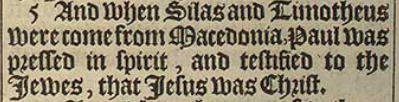 5 And when Silas and Timotheus
were come from Macedonia, Paul was
pressed in spirit, and testified to the
Jewes, that Jesus was Christ.